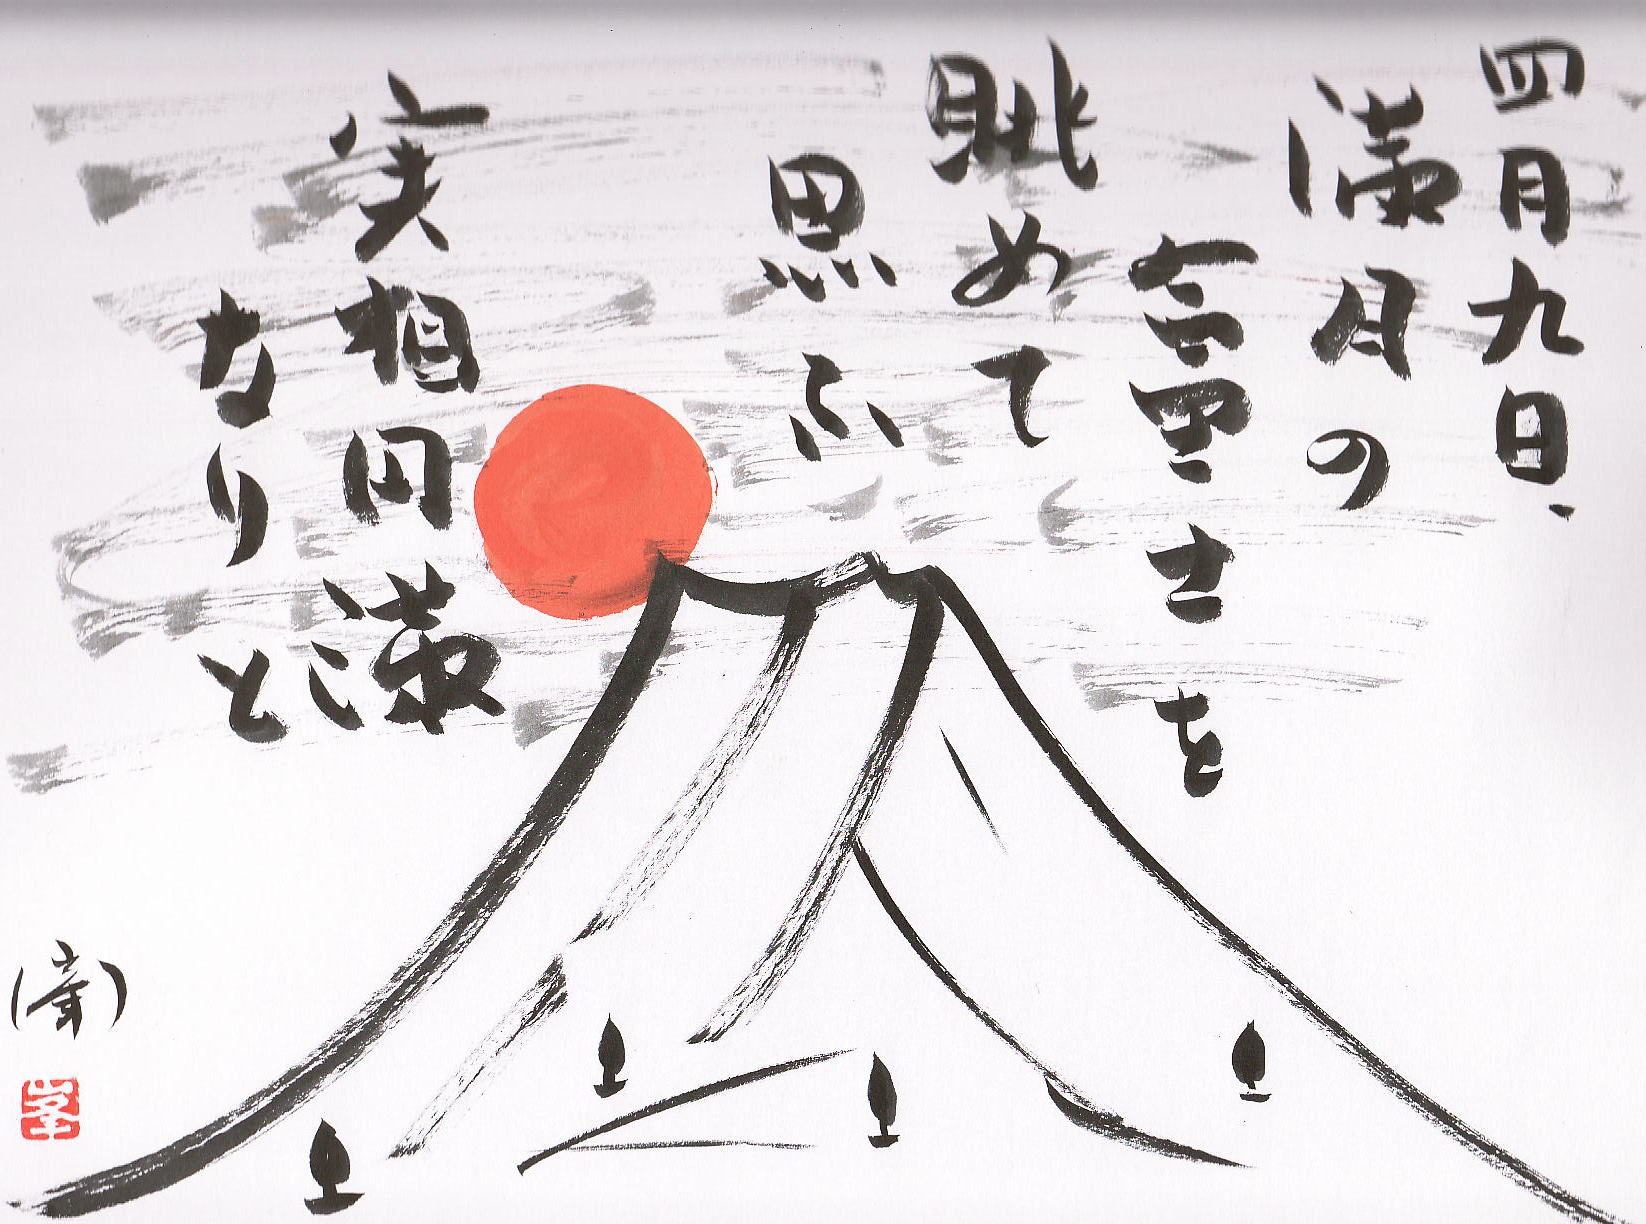 四月九日、
満月の
富士を
眺めて
思ふ
実相円満
なりと